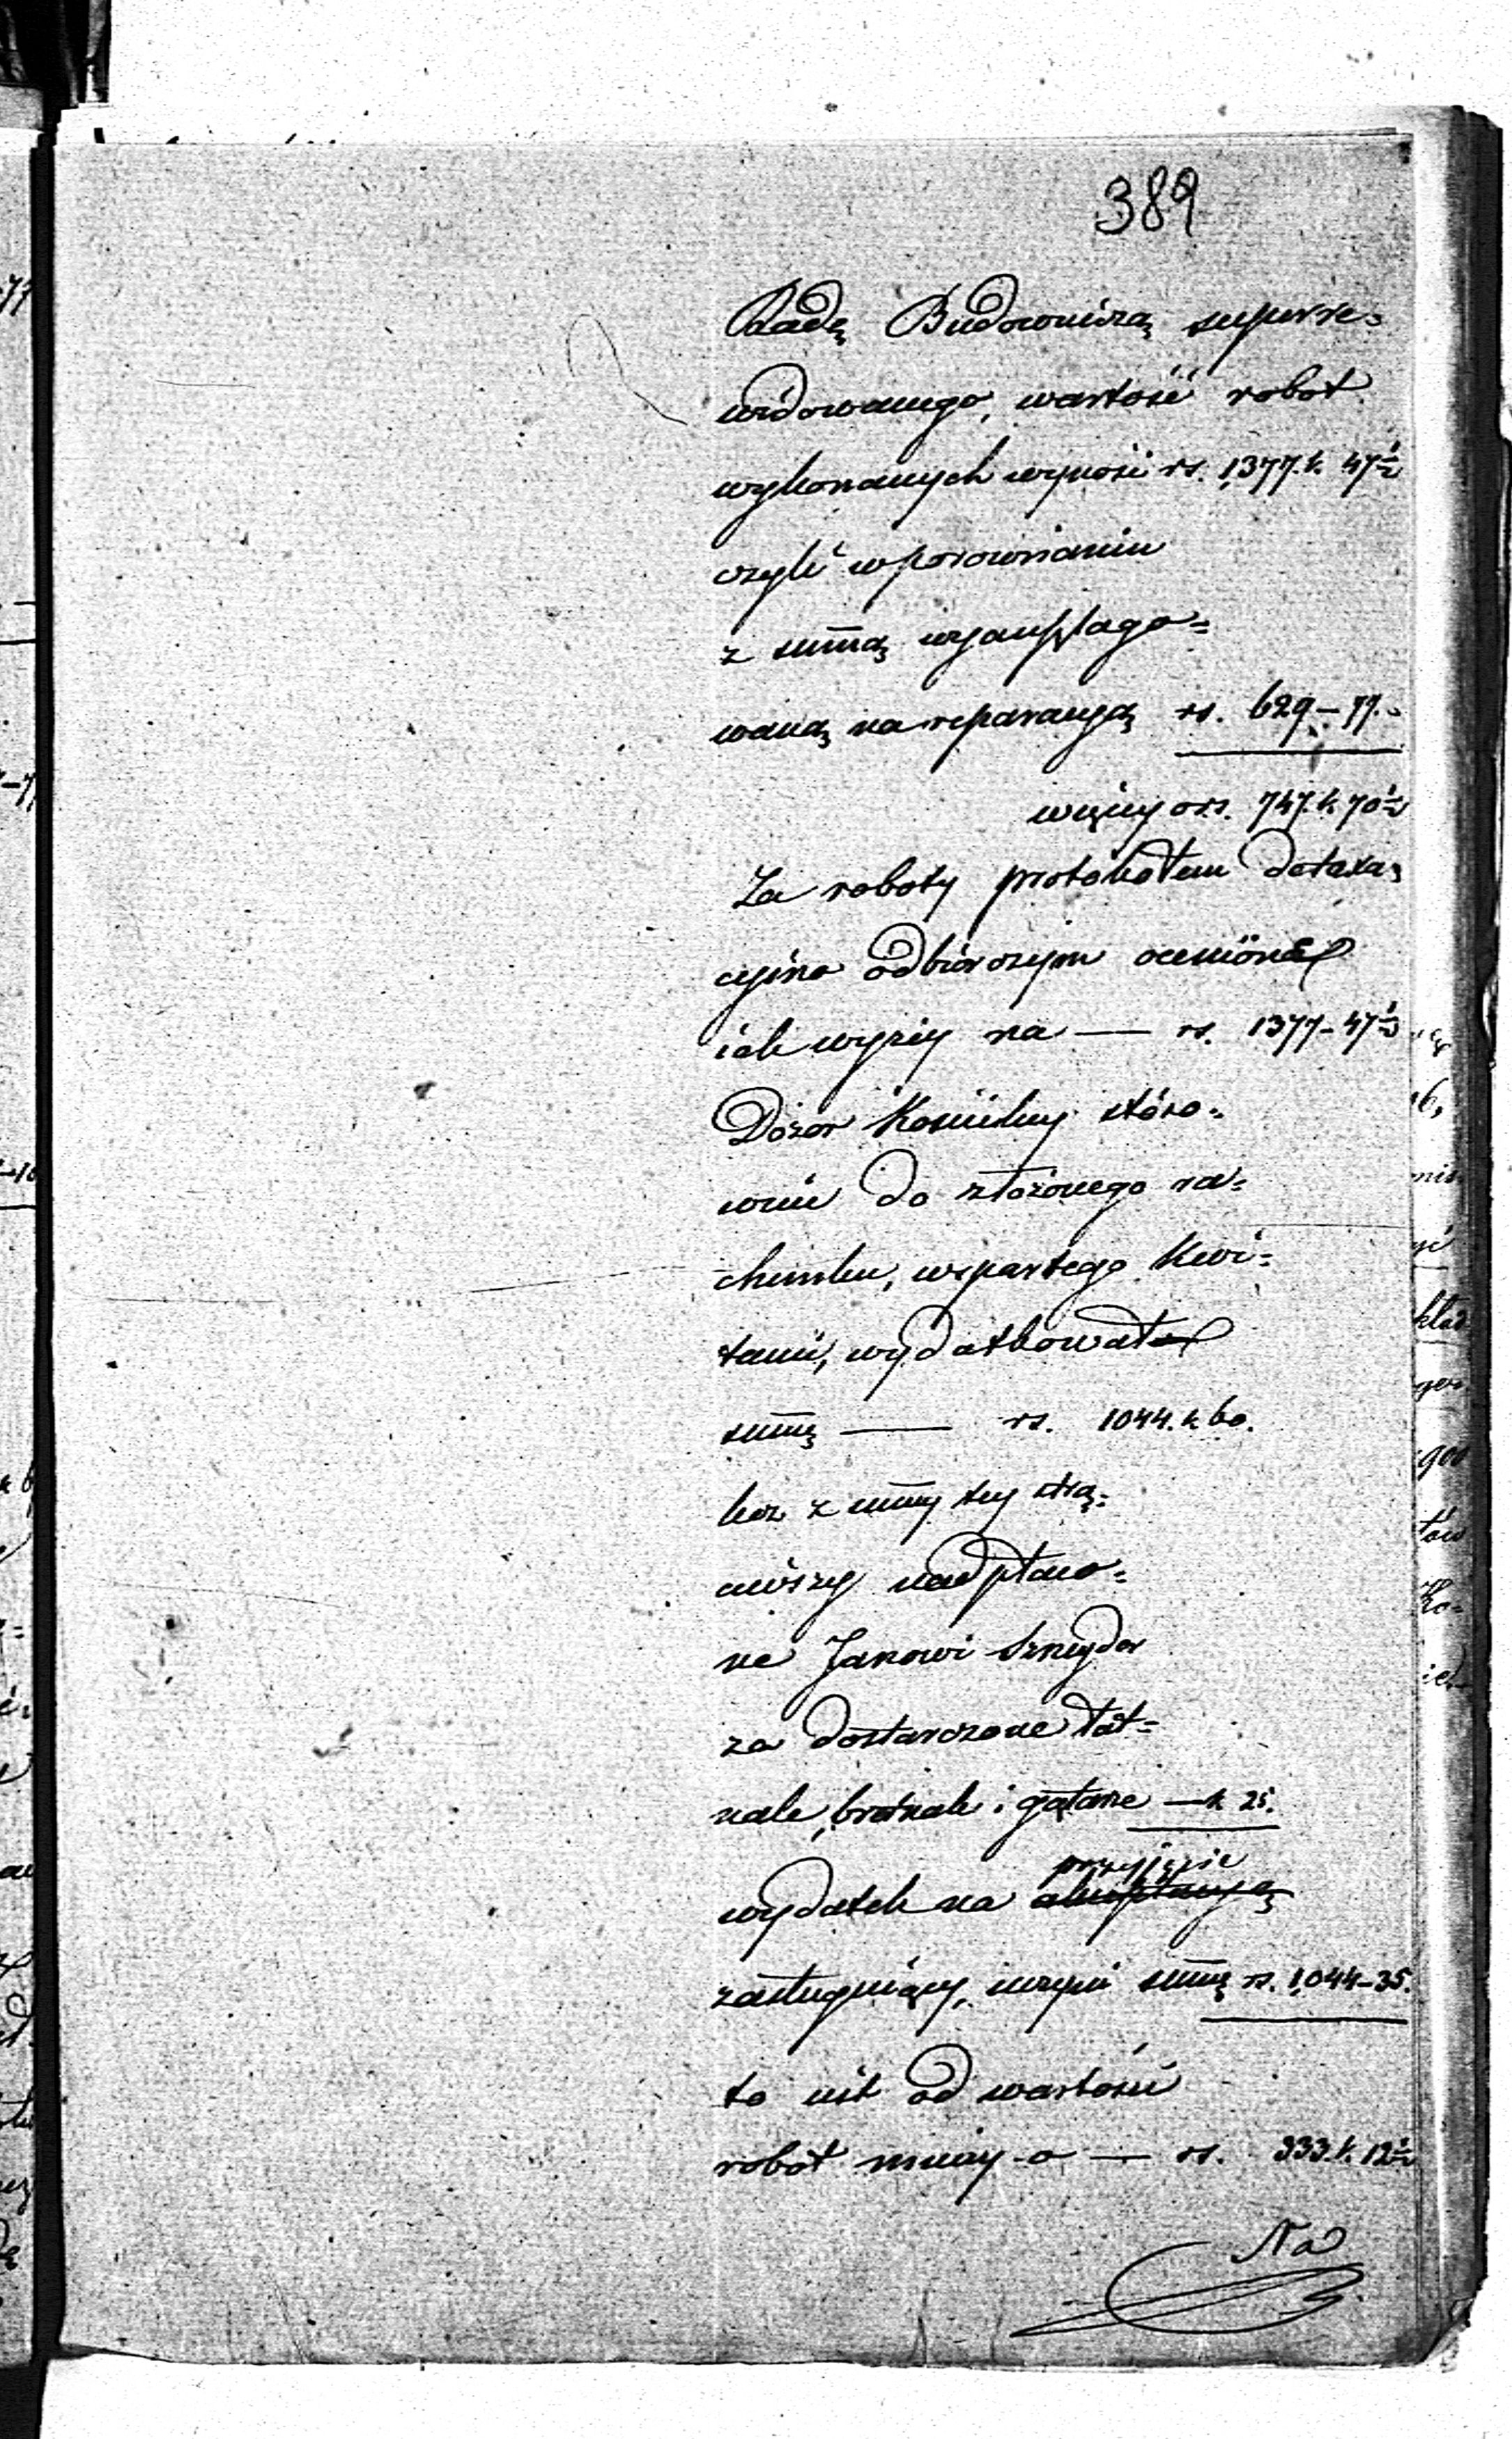 389
Radę Budowniczą superre=
widowanego, wartość robot
wykonanych wynosi rs. 1377. k. 47½
czyli w porownaniu
z sum̄ą wyanszlago=
waną na reparacyą rs. 629 – 77.
więcey o rs. 747. k. 70½
Za roboty protokołem detaxa=
cyino odbiorczym ocenione
iak wyżey na — rs. 1377 – 47½
Dozor Kościelny stóso=
wnie do złożonego ra=
chunku, wspartego Kwi=
tami, wydatkował
sum̄ę — rs. 1044. k 60.
lecz z sum̄y tey strą=
ciwszy nadpłaco=
ne Janowi Sznejder
za dostarczone łat=
nale, bratnale i gątale — k 25.
przyjęcie
wydatek na akceptacyą
zasługuiący, uczyni sum̄ę rs. 1044 – 35.
to iest od wartości
robot mniey o — rs. 333. k. 12½
Na